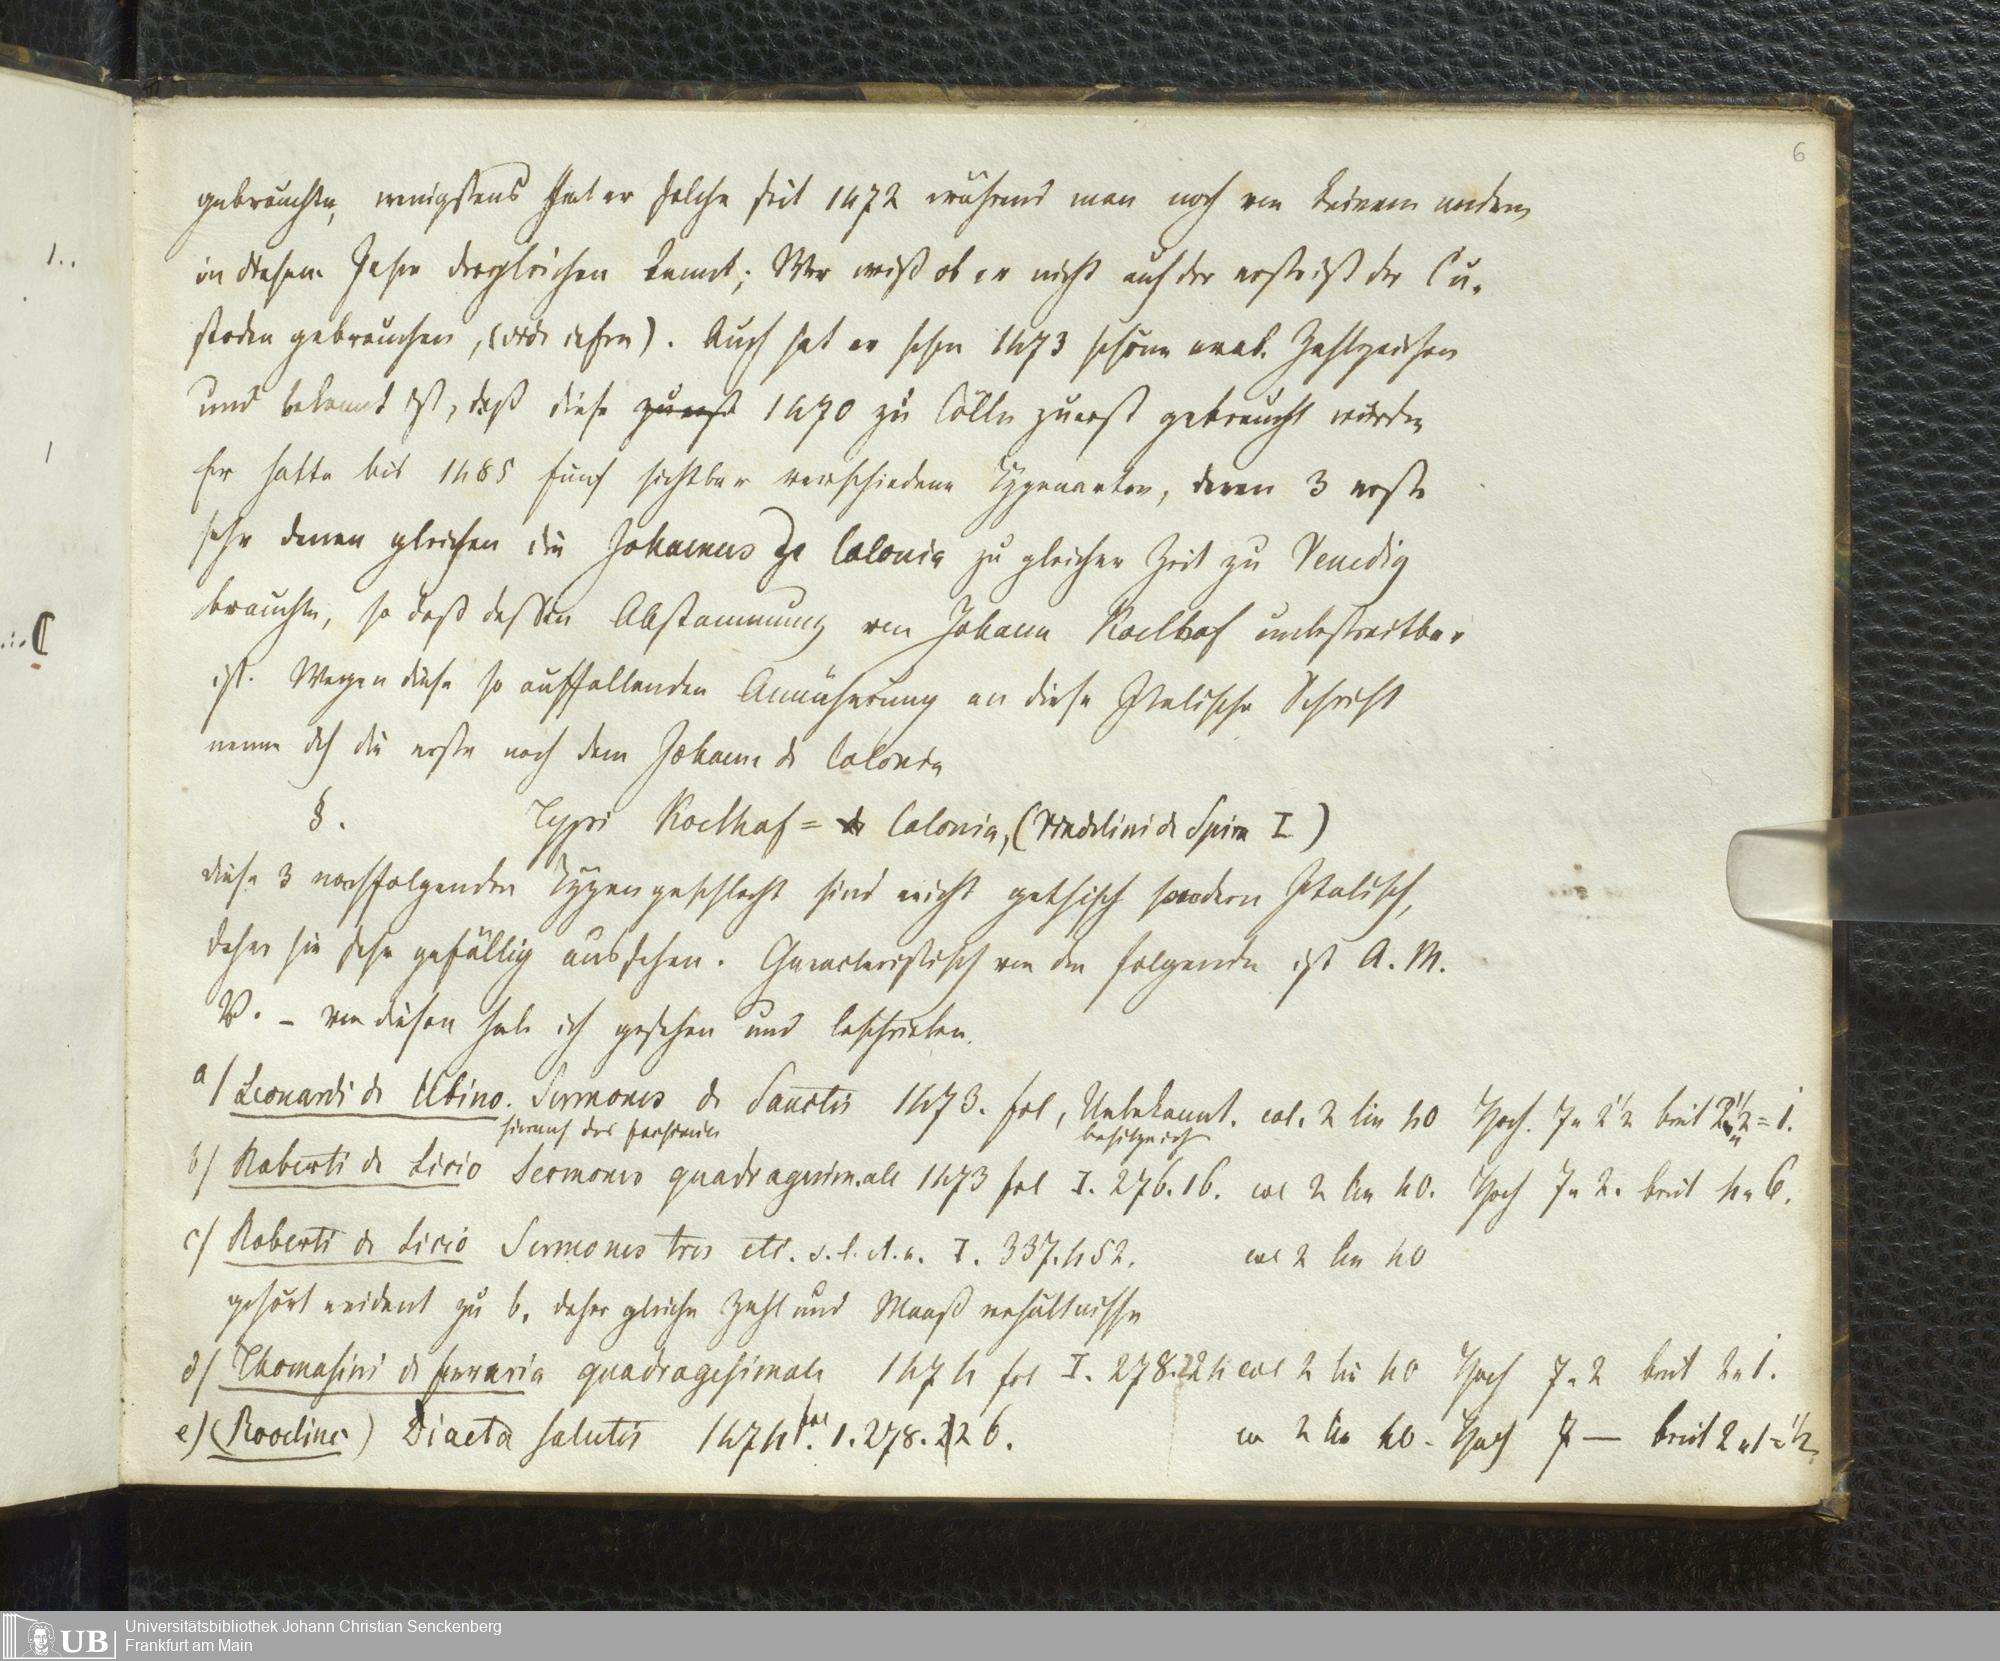 6
gebrauchte, wenigstens hat er solche seit 1472 während man noch von keinem andern
in diesem Jahre dergleichen kennt; Wer weiß ob er nicht auch der erste ist der Cu-
stoden gebrauchen, (). Auch hat er schon 1473 schöne arab. Zahlzeichen
und bekannt ist, daß diese zuerst 1470 zu Cölln zuerst gebraucht wurden
Er hatte bis 1485 fünf sichtbar verschiedene Typenarten, deren 3 erste
sehr denen gleichen die Johannes de Colonia zu gleicher Zeit zu Venedig
brauchte, so daß dessen Abstammung von Johann Koelhof unbestreitbar
ist. Wegen diese so auffallenden Annäherung an diese Italische Schrift
nenne ich die erste nach dem Johann de Colonia
§. Typi Koelhof = Colonia, (Vindelini de Spira I)
diese 3 nachfolgenden Typengeschlecht sind nicht gothisch sondern Italisch,
daher sie sehr gefällig aussehen. Characteristisch von den folgende ist A. M.
V. – von diesen habe ich gesehen und beschrieben.
a/ Leonardi de Utino. Sermones de Sanctis 1473. fol, Unbekannt. col. 2 lin 40 Hoch. 7" 2 1/2 breit 2 1/2 = 1.
b/ Roberti de Licio Sermones quadragesimale 1473 fol I. 276.16. col 2 lin 40. Hoch 7" 2. breit 4" 6.
c/ Roberti de Licio Sermones tres etc. s. l. et. a. I. 337.452. col 2 lin 40
gehört evident zu b. daher gleiche Zahl und Maaß verhältnisse
d/ Thomasini de ferraria quadragesimale 1474 fol I. 278.224 col 2 lin 40 Hoch 7" 2 breit 2" 1.
e/ () Diaeta salutis 1474 fol. I. 278. 226. co 2 lin 40. Hoch 7 — breit 2 "1 = 1/2
UB Universitätsbibliothek Johann Christian Senckenberg
Frankfurt am Main